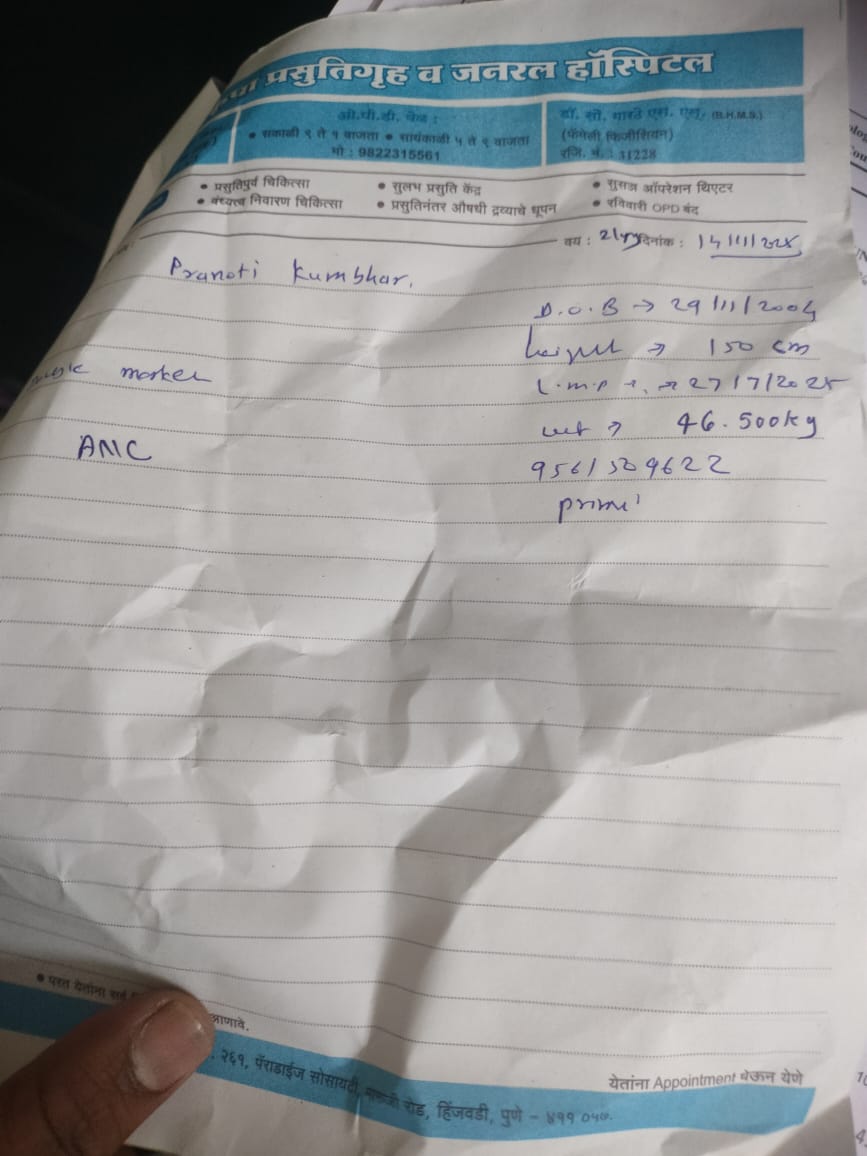 प्रसुतिगृह व जनरल हॉस्पिटल
ओ.पी.डी. वेळ :
• सकाळी ९ ते १ वाजता • सायंकाळी ५ ते ९ वाजता
मो : 9822315561
डॉ. सौ. गारडे एस. एस. (B.H.M.S.)
(फॅमिली फिजीशियन)
रजि. नं. : 31228
• प्रसुतिपुर्व चिकित्सा
• सुलभ प्रसुति केंद्र
• सुसज्ज ऑपरेशन थिएटर
• वंध्यत्व निवारण चिकित्सा
• प्रसुतिनंतर औषधी द्रव्याचे धूपन
• रविवारी OPD बंद
वय : 21yrs दिनांक : 14/11/2025
Pranoti Kumbhar.
D.O.B → 29/11/2004
height → 150 cm
marker
L.M.P → 27/7/2025
wt → 46.500kg
ANC
9561309622
primi
• परत येतांना सर्व
आणावे.
येतांना Appointment घेऊन येणे
२६१, पॅराडाईज सोसायटी, माणजी रोड, हिंजवडी, पुणे - ४११ ०५७.